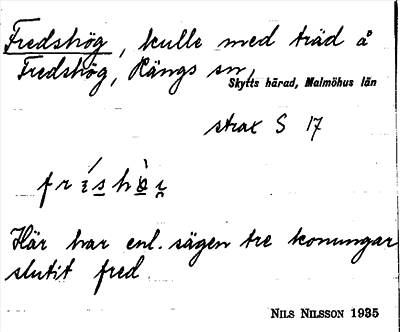 Fredshög, kulle med träd å
Fredshög, Hängs sn,
Skytts härad, Malmöhus län
strax S 17
Här har enl. sägen tre konungar
slutit fred
NILS NILSSON 1935